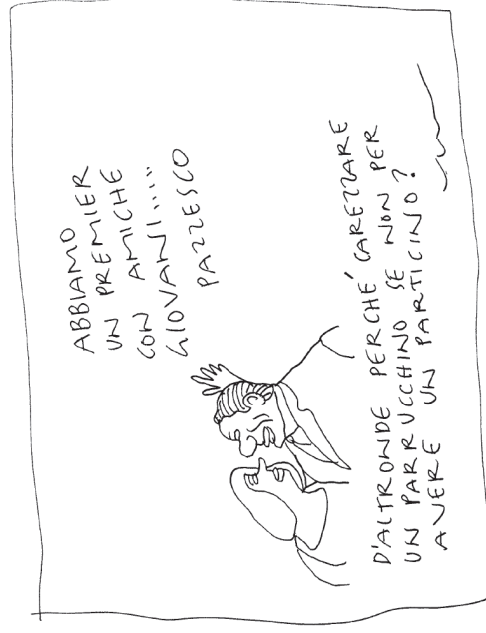 ABBIAMO
UN PREMIER
CON AMICHE
GIOVANI.....
PAZZESCO
D'ALTRONDE PERCHÉ CAREZZARE
UN PARRUCCHINO SE NON PER
AVERE UN PARTICINO?